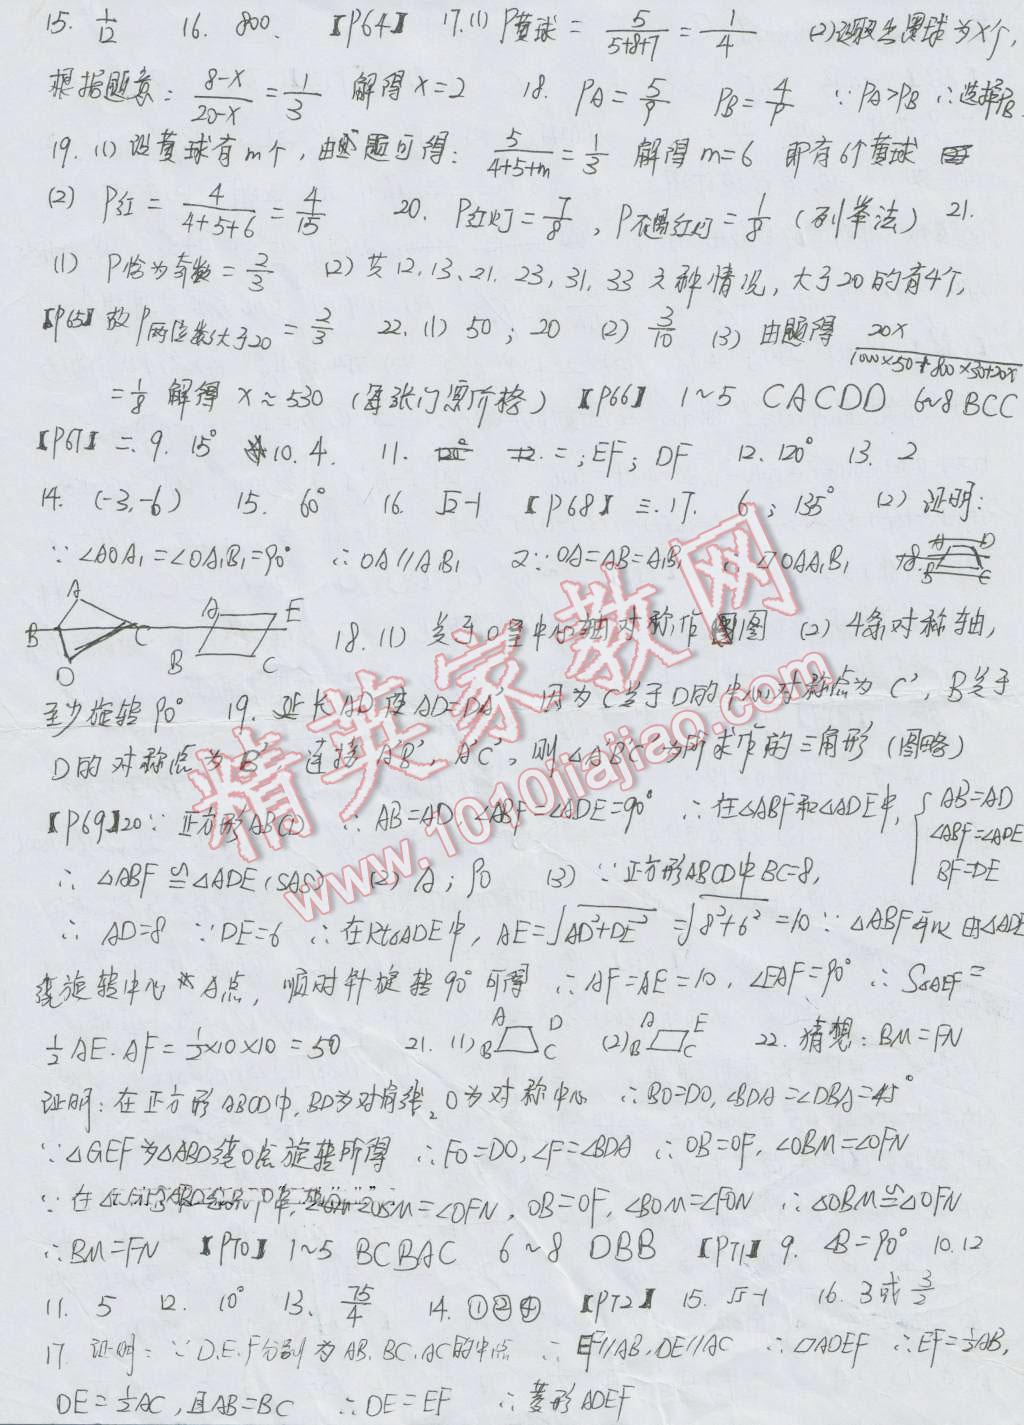 15. 1/12 16. 800. 【P64】 17.(1) P黄球 = 5/(5+8+7) = 1/4 (2)设取出黑球为x个,
根据题意: (8-x)/(20-x) = 1/3 解得 x=2 18. PA = 5/9 PB = 4/9 ∵ PA>PB ∴选择
19. (1) 设黄球有m个, 由题可得: 5/(4+5+m) = 1/3 解得 m=6 即有6个黄球
(2) P红 = 4/(4+5+6) = 4/15 20. P红灯 = 7/8, P不遇红灯 = 1/8 (列举法) 21.
(1) P恰为奇数 = 2/3 (2) 共12, 13, 21, 23, 31, 33 六种情况, 大于20的有4个,
【P65】故P两位数大于20 = 2/3 22. (1) 50; 20 (2) 3/10 (3) 由题得 20x/(1000×50+800×30+20x)
= 1/8 解得 x≈530 (每张门票价格) 【P66】 1~5 CACDD 6~8 BCC
【P67】二. 9. 15° 10. 4. 11. =; EF; DF 12. 120° 13. 2
14. (-3,-6) 15. 60° 16. √2-1 【P68】三. 17. 6; 135° (2) 证明:
∵ ∠AOA₁=∠OA₁B₁=90° ∴ OA∥A₁B₁ 又∵OA=AB=A₁B₁ ▱OAA₁B₁ 18. A D B C
A B C D A E B C 18. (1) 关于 中心 轴对称作图 (2) 4条对称轴,
至少旋转90° 19. 延长AD使AD=DA′ 因为C关于D的中心对称点为C′, B关于
D的对称点为B′ 连接A′B′, A′C′, 则△A′B′C′为所求作的三角形 (图略)
【P69】20∵正方形ABCD ∴ AB=AD, ∠ABF=∠ADE=90° ∴在△ABF和△ADE中, { AB=AD ∠ABF=∠ADE BF=DE
∴ △ABF≌△ADE (SAS) (2) A; 90 (3) ∵正方形ABCD中BC=8,
∴ AD=8 ∵DE=6 ∴在Rt△ADE中, AE=√(AD²+DE²) =√(8²+6²) =10 ∵ △ABF可以由△ADE
绕旋转中心A点, 顺时针旋转90°可得 ∴AF=AE=10, ∠EAF=90° ∴S△AEF=
½AE·AF=½×10×10=50 21. (1) A D B C (2) A E B C 22. 猜想: BM=FN
证明: 在正方形ABCD中, BD为对角线, O为对称中心 ∴BO=DO, ∠BDA=∠DBA=45°
∵△GEF为△ABD绕O点旋转所得 ∴FO=DO, ∠F=∠BDA ∴OB=OF, ∠OBM=∠OFN
∵在 中, ∠OBM=∠OFN, OB=OF, ∠BOM=∠FON ∴△OBM≌△OFN
∴BM=FN 【P70】 1~5 BCBAC 6~8 DBB 【P71】 9. ∠B=90° 10. 12
11. 5 12. 10° 13. 75/4 14. ①②④ 【P72】 15. √5-1 16. 3或3/2
17. 证明: ∵D.E.F分别为AB.BC.AC的中点 ∴ EF∥AB, DE∥AC ∴▱ADEF ∴EF=½AB,
DE=½AC, 且AB=BC ∴DE=EF ∴菱形ADEF
精英家教网
www.1010jiajiao.com